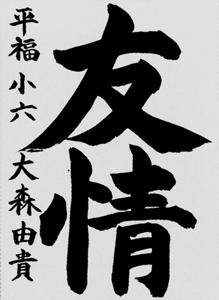 友情
平福小六 大森由貴